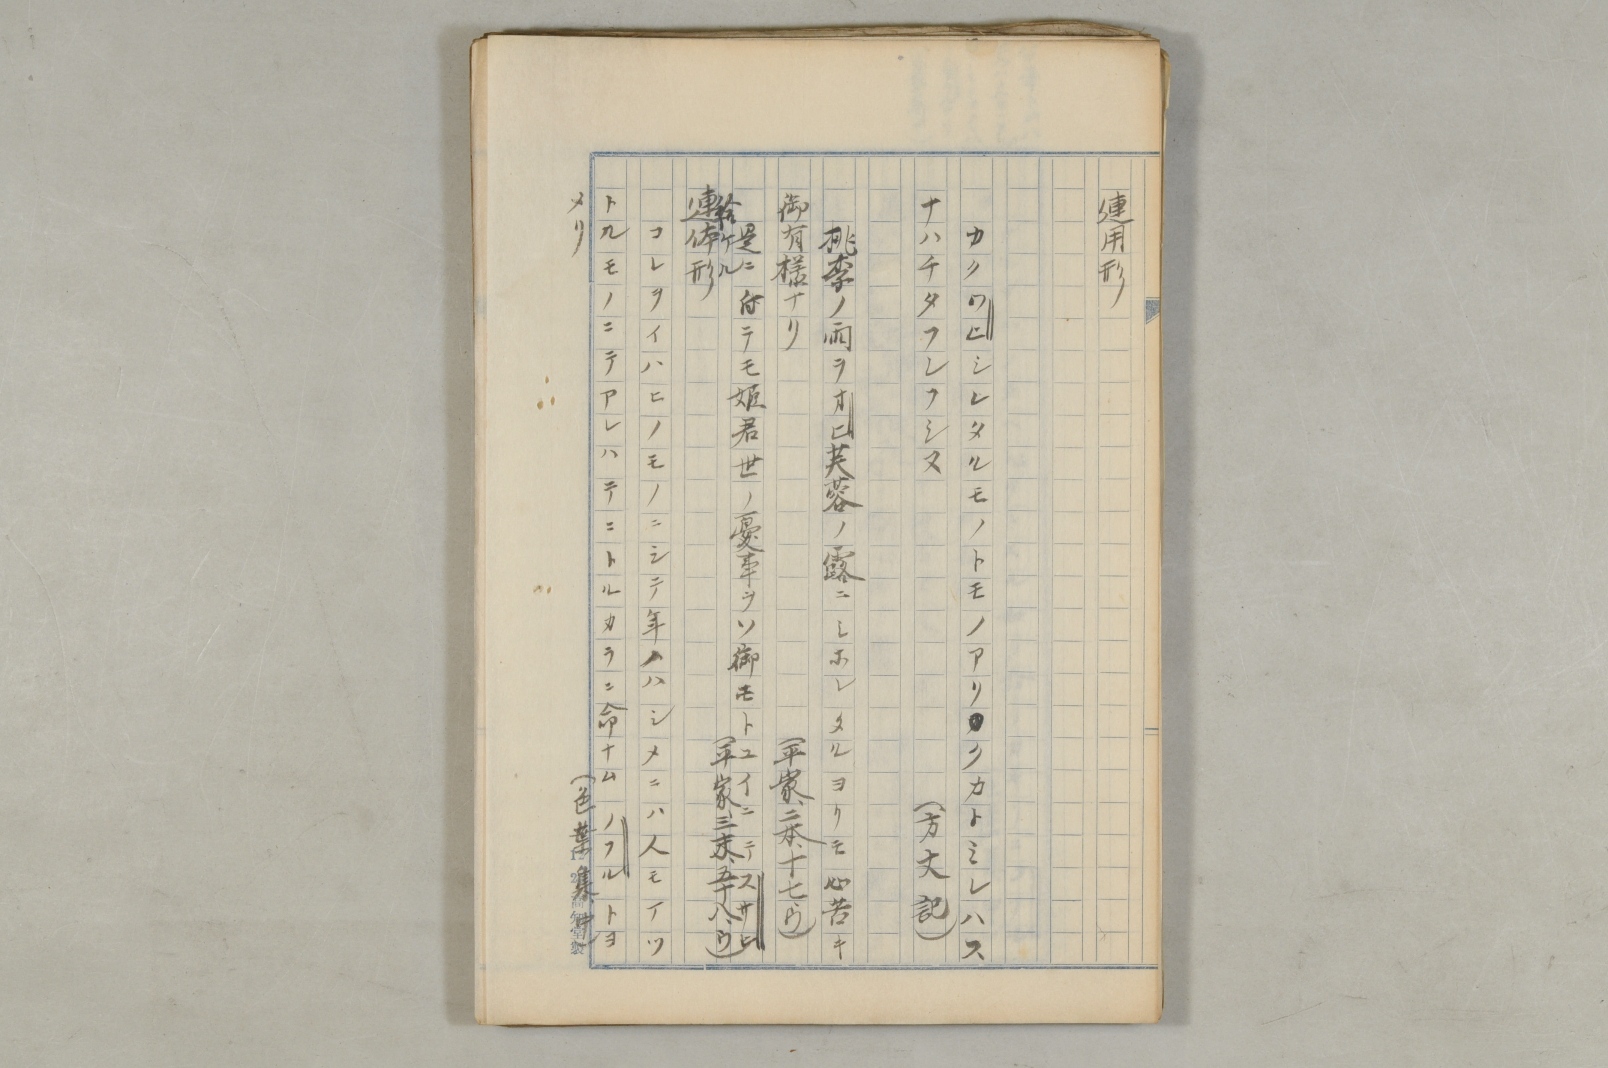 連用形
カクワヒシレタルモノトモノアリクカトミレハス
ナハチタフレフシヌ
（方丈記）
桃李ノ雨ヲオヒ芙蓉ノ露ニシホレタルヨリモ心苦キ
御有様ナリ
（平家、二本、十七ウ）
是ニ付テモ姫君世ノ憂事ヲソ御モトユイニテスサヒ
給ケル
（平家、三末、五十八、ウ）
連体形
コレヲイハヒノモノニシテ年ノハシメニハ人モイツ
トルモノニテアレハテニトルカラニ命ナムノフルトヨ
メリ
（色葉集、中）